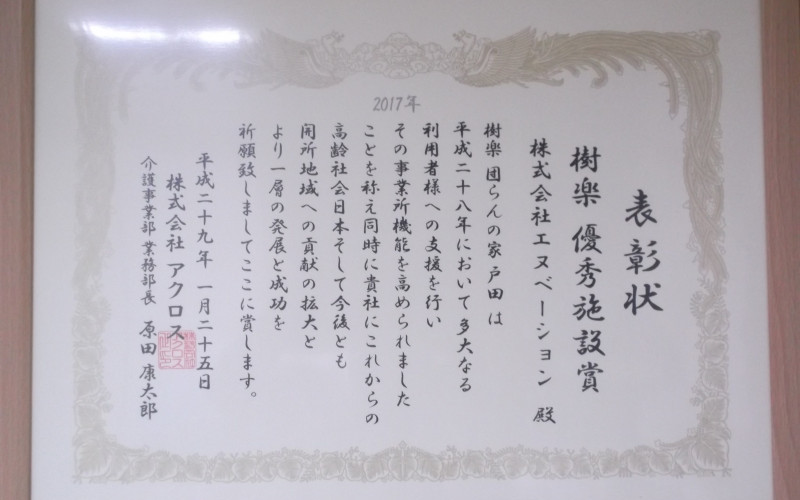 2017年
表彰状
樹楽 優秀施設賞
株式会社エヌベーション 殿
樹楽 団らんの家 戸田 は
平成二十八年において多大なる
利用者様への支援を行い
その事業所機能を高められました
ことを称え同時に貴社にこれからの
高齢社会日本そして今後とも
開所地域への貢献の拡大と
より一層の発展と成功を
祈願致しましてここに賞します。
平成二十九年 一月二十五日
株式会社 アクロス
介護事業部 業務部長 原田 康太郎